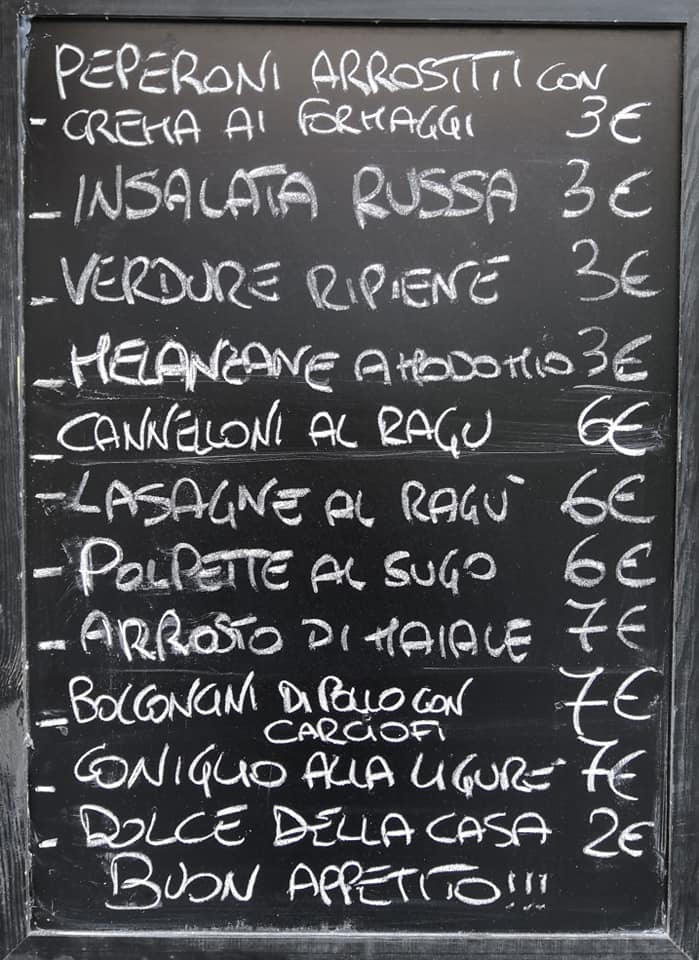 PEPERONI ARROSTITI CON
- CREMA AI FORMAGGI 3€
- INSALATA RUSSA 3€
- VERDURE RIPIENE 3€
- MELANZANE A MODO MIO 3€
- CANNELLONI AL RAGU 6€
- LASAGNE AL RAGU' 6€
- POLPETTE AL SUGO 6€
- ARROSTO DI MAIALE 7€
- BOCCONCINI DI POLLO CON 7€
CARCIOFI
- CONIGLIO ALLA LIGURE 7€
- DOLCE DELLA CASA 2€
BUON APPETITO!!!